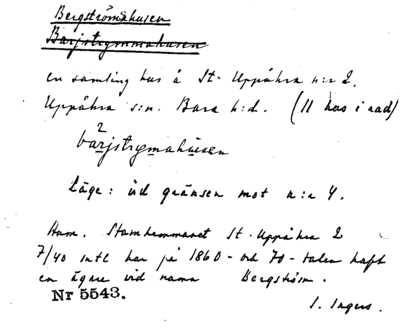 Bergströmahusen
Barjstrymmahusen
en samling hus å St. Uppåkra n:r 2.
Uppåkra s:n. Bara h:d. (11 hus i rad)
2
barjstrymahusen
Läge: vid gränsen mot n:r 4.
Hem. Stamhemmanet St. Uppåkra 2
7/40 mtl har på 1860- och 70-talen haft
en ägare vid namn Bergström.
Nr 5543.
I. Ingers.